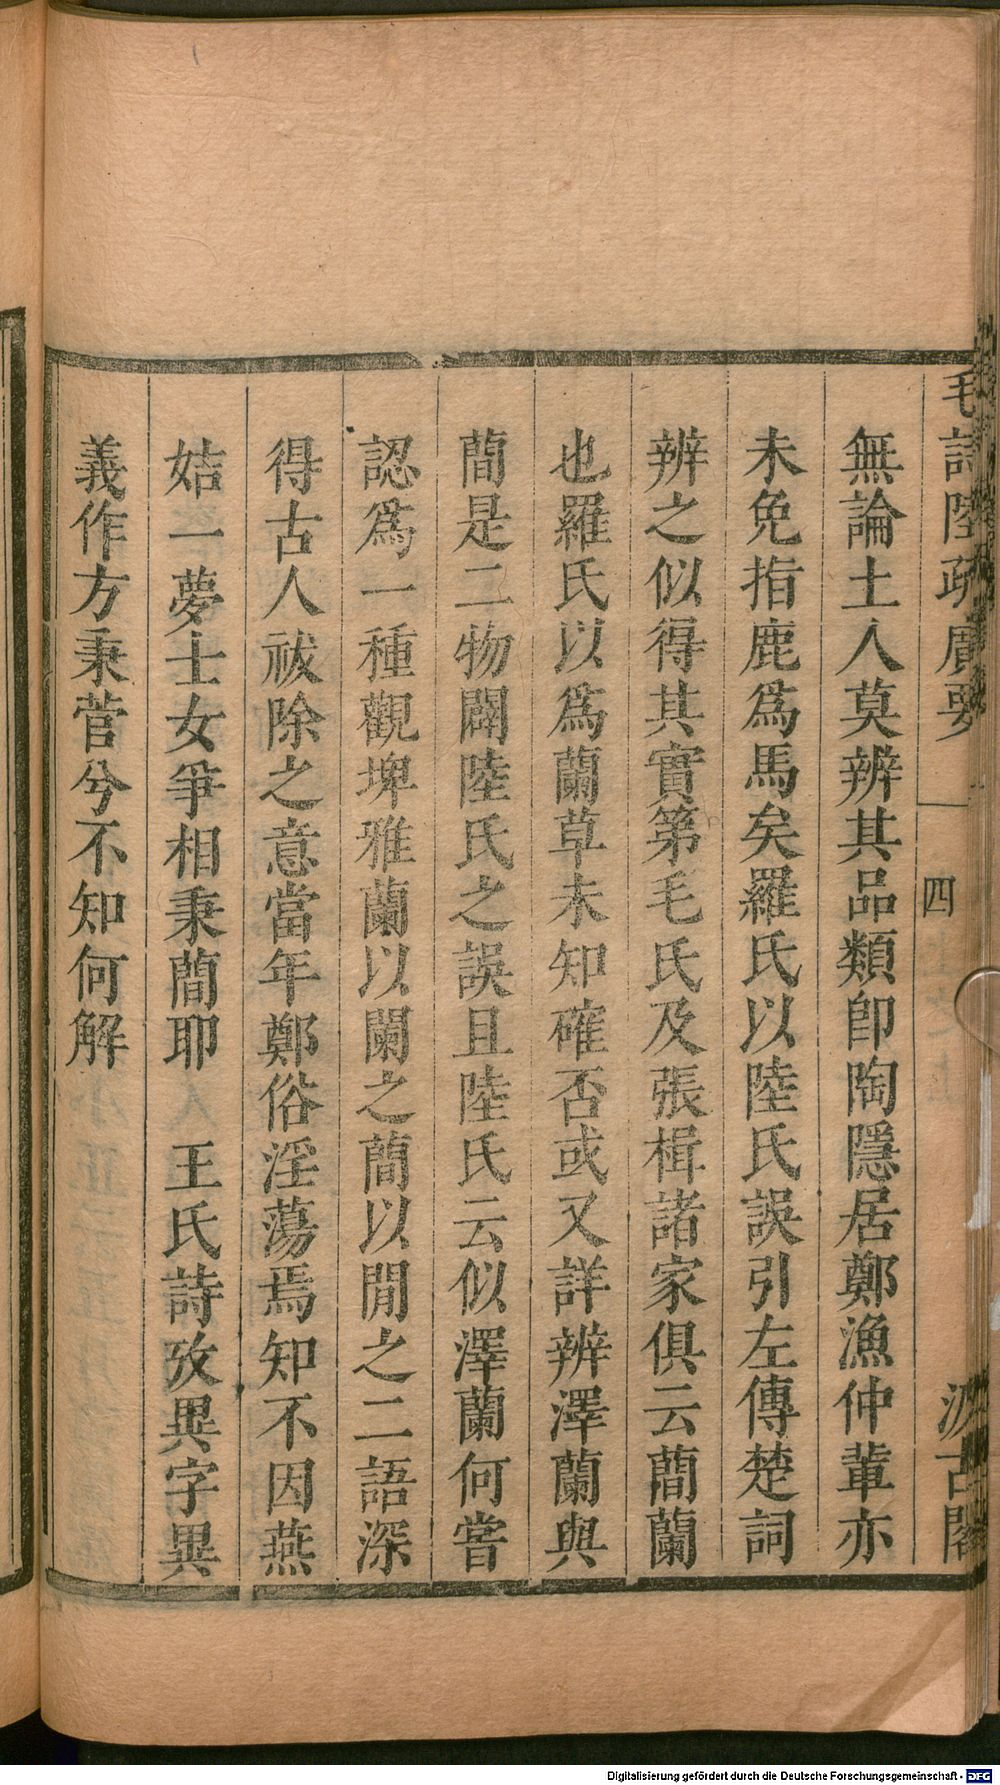 毛詩陸疏廣要
四
汲古閣
無論土人莫辨其品類卽陶隱居鄭漁仲軰亦
未免指鹿爲馬矣羅氏以陸氏誤引左傳楚詞
辨之似得其實第毛氏及張楫諸家俱云蕳蘭
也羅氏以爲蘭草未知確否或又詳辨澤蘭與
蕳是二物闢陸氏之誤且陸氏云似澤蘭何嘗
認爲一種觀埤雅蘭以闌之蕳以閒之二語深
得古人祓除之意當年鄭俗淫蕩焉知不因燕
姞一夢士女爭相秉蕳耶　王氏詩攷異字異
義作方秉菅兮不知何解
Digitalisierung gefördert durch die Deutsche Forschungsgemeinschaft - DFG